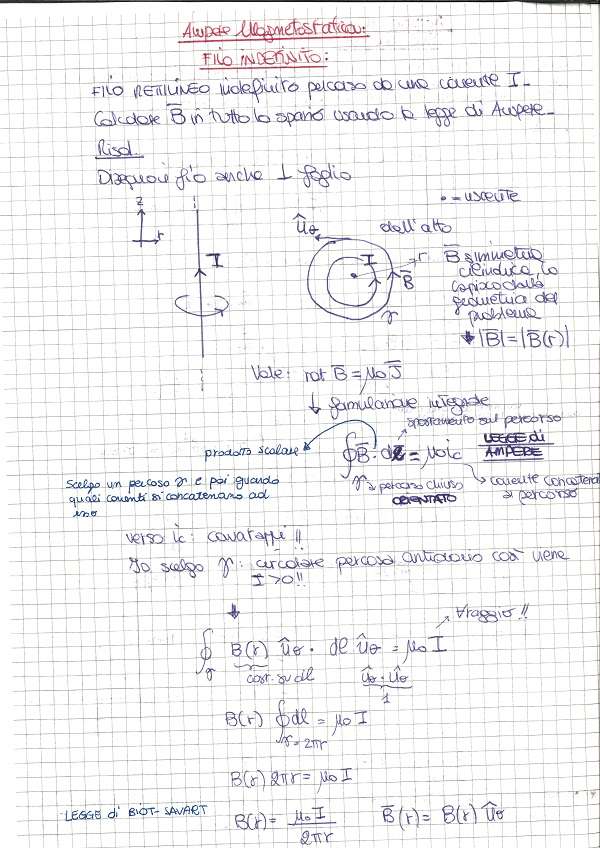 Ampere Magnetostatica:
FILO INDEFINITO:
FILO RETTILINEO indefinito percorso da una corrente I.
Calcolare B̄ in tutto lo spazio usando la legge di Ampere.
Risol.
Disegno il filo anche ⊥ foglio
• = uscente
z
r
I
ûθ
dall'alto
I
r
B̄
γ
B̄ simmetria
cilindrica, lo
capisco dalla
geometria del
problema
|B̄| = |B̄(r)|
Vale: rot B̄ = μ₀ J̄
↓ formulazione integrale
spostamento sul percorso
prodotto scalare
∮ B̄ · dl̄ = μ₀ ic
LEGGE di
AMPERE
γ → percorso chiuso
ORIENTATO
corrente concatenata
al percorso
Scelgo un percorso γ e poi guardo
quali correnti si concatenano ad
esso
verso ic: cavatappi !!
Io scelgo γ: circolare percorsa antiorario così viene
I > 0 !!
↓
∀ raggio !!
∮γ B(r) ûθ · dl ûθ = μ₀ I
cost. su dl
ûθ · ûθ
1
B(r) ∮ dl = μ₀ I
γ = 2πr
B(r) 2πr = μ₀ I
LEGGE di BIOT-SAVART
B(r) = μ₀ I / 2πr
B̄(r) = B(r) ûθ